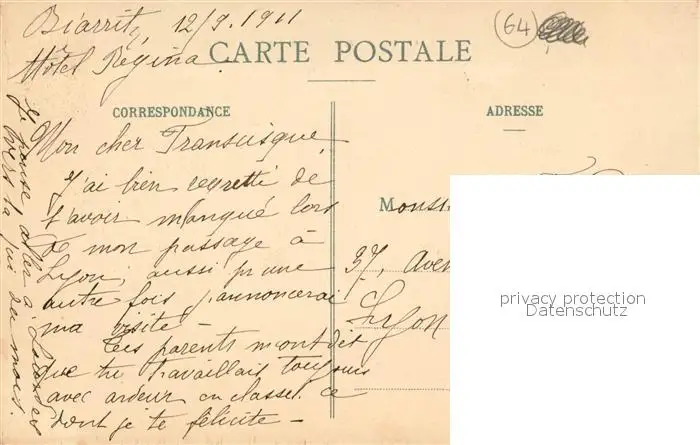 Biarritz, 12/9. 1911
Hôtel Régina.
64
CARTE POSTALE
CORRESPONDANCE
ADRESSE
Mon cher
J'ai bien regretté de
t'avoir manqué lors
de mon passage à
Lyon, aussi pr une
autre fois j'annoncerai
ma visite -
Tes parents m'ont dit
que tu travaillais toujours
avec ardeur en classe. ce
dont je te félicite -
Je pense aller à
vers la fin du mois.
Monsi
37, Aven
Lyon
privacy protection
Datenschutz